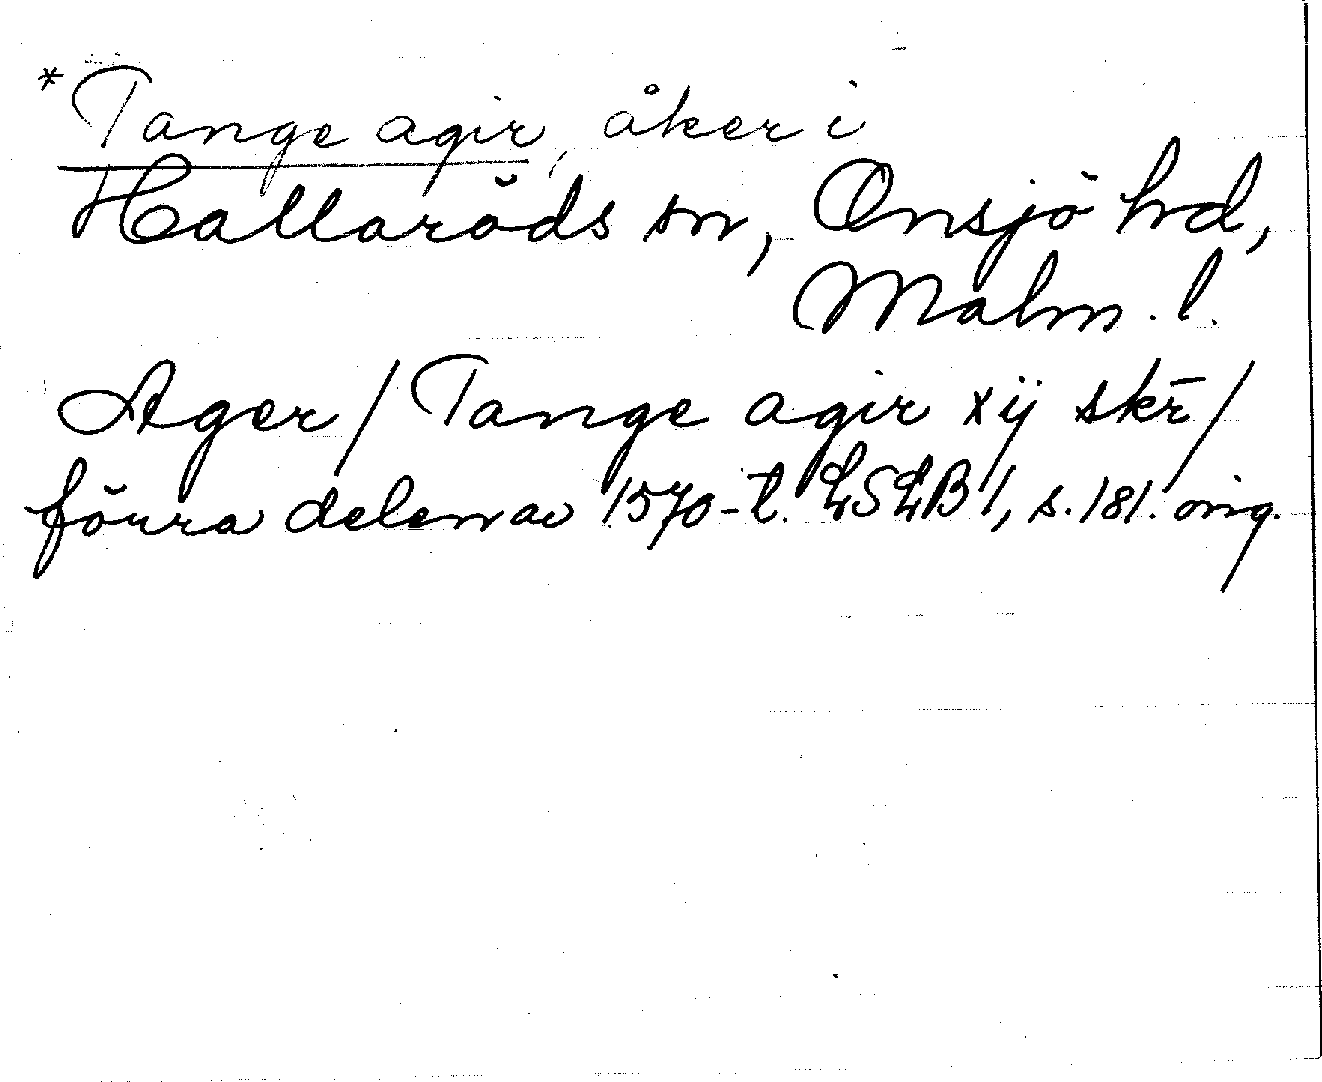 *Tange agir, åker i
Hallaröds sn, Onsjö hd,
Malm. l.
Ager/Tange agir xij skr̄/
förra delen av 1570-t. LSLB 1, s. 181. orig.